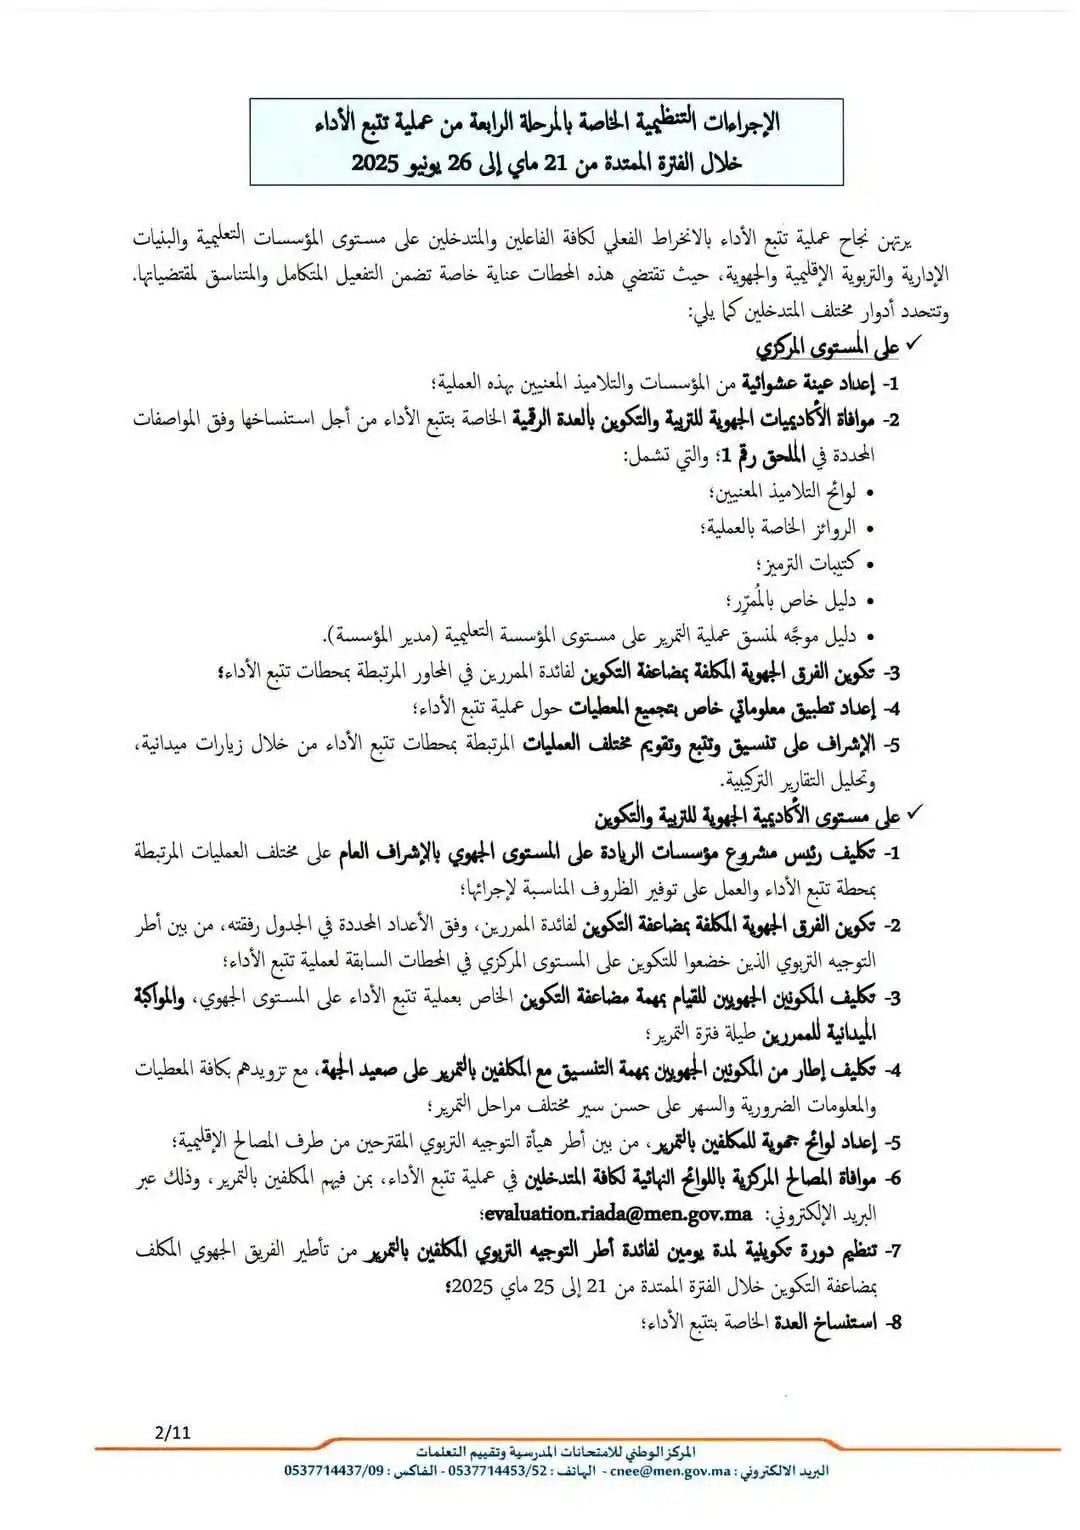 الإجراءات التنظيمية الخاصة بالمرحلة الرابعة من عملية تتبع الأداء
خلال الفترة الممتدة من 21 ماي إلى 26 يونيو 2025
يرتهن نجاح عملية تتبع الأداء بالانخراط الفعلي لكافة الفاعلين والمتدخلين على مستوى المؤسسات التعليمية والبنيات
الإدارية والتربوية الإقليمية والجهوية، حيث تقتضي هذه المحطات عناية خاصة تضمن التفعيل المتكامل والمتناسق لمقتضياتها.
وتتحدد أدوار مختلف المتدخلين كما يلي:
✓ على المستوى المركزي
1- إعداد عينة عشوائية من المؤسسات والتلاميذ المعنيين بهذه العملية؛
2- موافاة الأكاديميات الجهوية للتربية والتكوين بالعدة الرقمية الخاصة بتتبع الأداء من أجل استنساخها وفق المواصفات
المحددة في الملحق رقم 1؛ والتي تشمل:
• لوائح التلاميذ المعنيين؛
• الروائز الخاصة بالعملية؛
• كتيبات الترميز؛
• دليل خاص بالمُمَرِّر؛
• دليل موجَّه لمنسق عملية التمرير على مستوى المؤسسة التعليمية (مدير المؤسسة).
3- تكوين الفرق الجهوية المكلفة بمضاعفة التكوين لفائدة الممررين في المحاور المرتبطة بمحطات تتبع الأداء؛
4- إعداد تطبيق معلوماتي خاص بتجميع المعطيات حول عملية تتبع الأداء؛
5- الإشراف على تنسيق وتتبع وتقويم مختلف العمليات المرتبطة بمحطات تتبع الأداء من خلال زيارات ميدانية،
وتحليل التقارير التركيبية.
✓ على مستوى الأكاديمية الجهوية للتربية والتكوين
1- تكليف رئيس مشروع مؤسسات الريادة على المستوى الجهوي بالإشراف العام على مختلف العمليات المرتبطة
بمحطة تتبع الأداء والعمل على توفير الظروف المناسبة لإجرائها؛
2- تكوين الفرق الجهوية المكلفة بمضاعفة التكوين لفائدة الممررين، وفق الأعداد المحددة في الجدول رفقته، من بين أطر
التوجيه التربوي الذين خضعوا للتكوين على المستوى المركزي في المحطات السابقة لعملية تتبع الأداء؛
3- تكليف المكونين الجهويين للقيام بمهمة مضاعفة التكوين الخاص بعملية تتبع الأداء على المستوى الجهوي، والمواكبة
الميدانية للممررين طيلة فترة التمرير؛
4- تكليف إطار من المكونين الجهويين بمهمة التنسيق مع المكلفين بالتمرير على صعيد الجهة، مع تزويدهم بكافة المعطيات
والمعلومات الضرورية والسهر على حسن سير مختلف مراحل التمرير؛
5- إعداد لوائح جهوية للمكلفين بالتمرير، من بين أطر هيأة التوجيه التربوي المقترحين من طرف المصالح الإقليمية؛
6- موافاة المصالح المركزية باللوائح النهائية لكافة المتدخلين في عملية تتبع الأداء، بمن فيهم المكلفين بالتمرير، وذلك عبر
البريد الإلكتروني: evaluation.riada@men.gov.ma؛
7- تنظيم دورة تكوينية لمدة يومين لفائدة أطر التوجيه التربوي المكلفين بالتمرير من تأطير الفريق الجهوي المكلف
بمضاعفة التكوين خلال الفترة الممتدة من 21 إلى 25 ماي 2025؛
8- استنساخ العدة الخاصة بتتبع الأداء؛
2/11
المركز الوطني للامتحانات المدرسية وتقييم التعلمات
البريد الالكتروني : cnee@men.gov.ma - الهاتف : 0537714453/52 - الفاكس : 0537714437/09